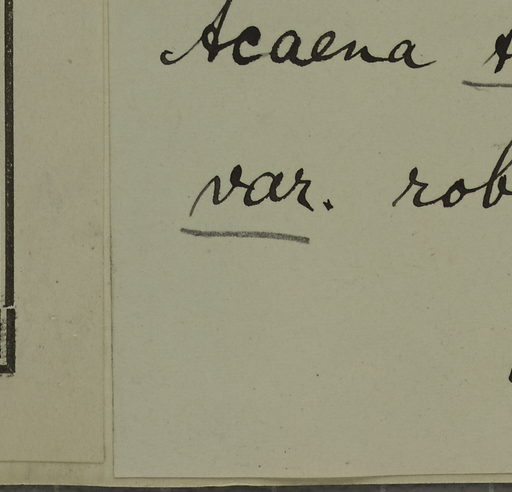 Acaena
var. rob